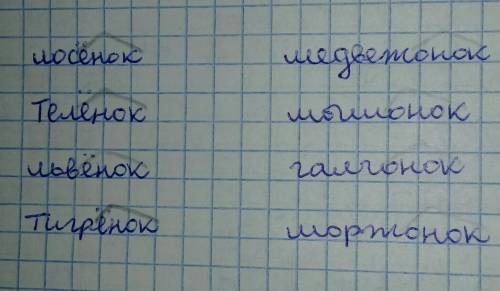 лосёнок медвежонок
Телёнок мышонок
львёнок галчонок
тигрёнок моржонок